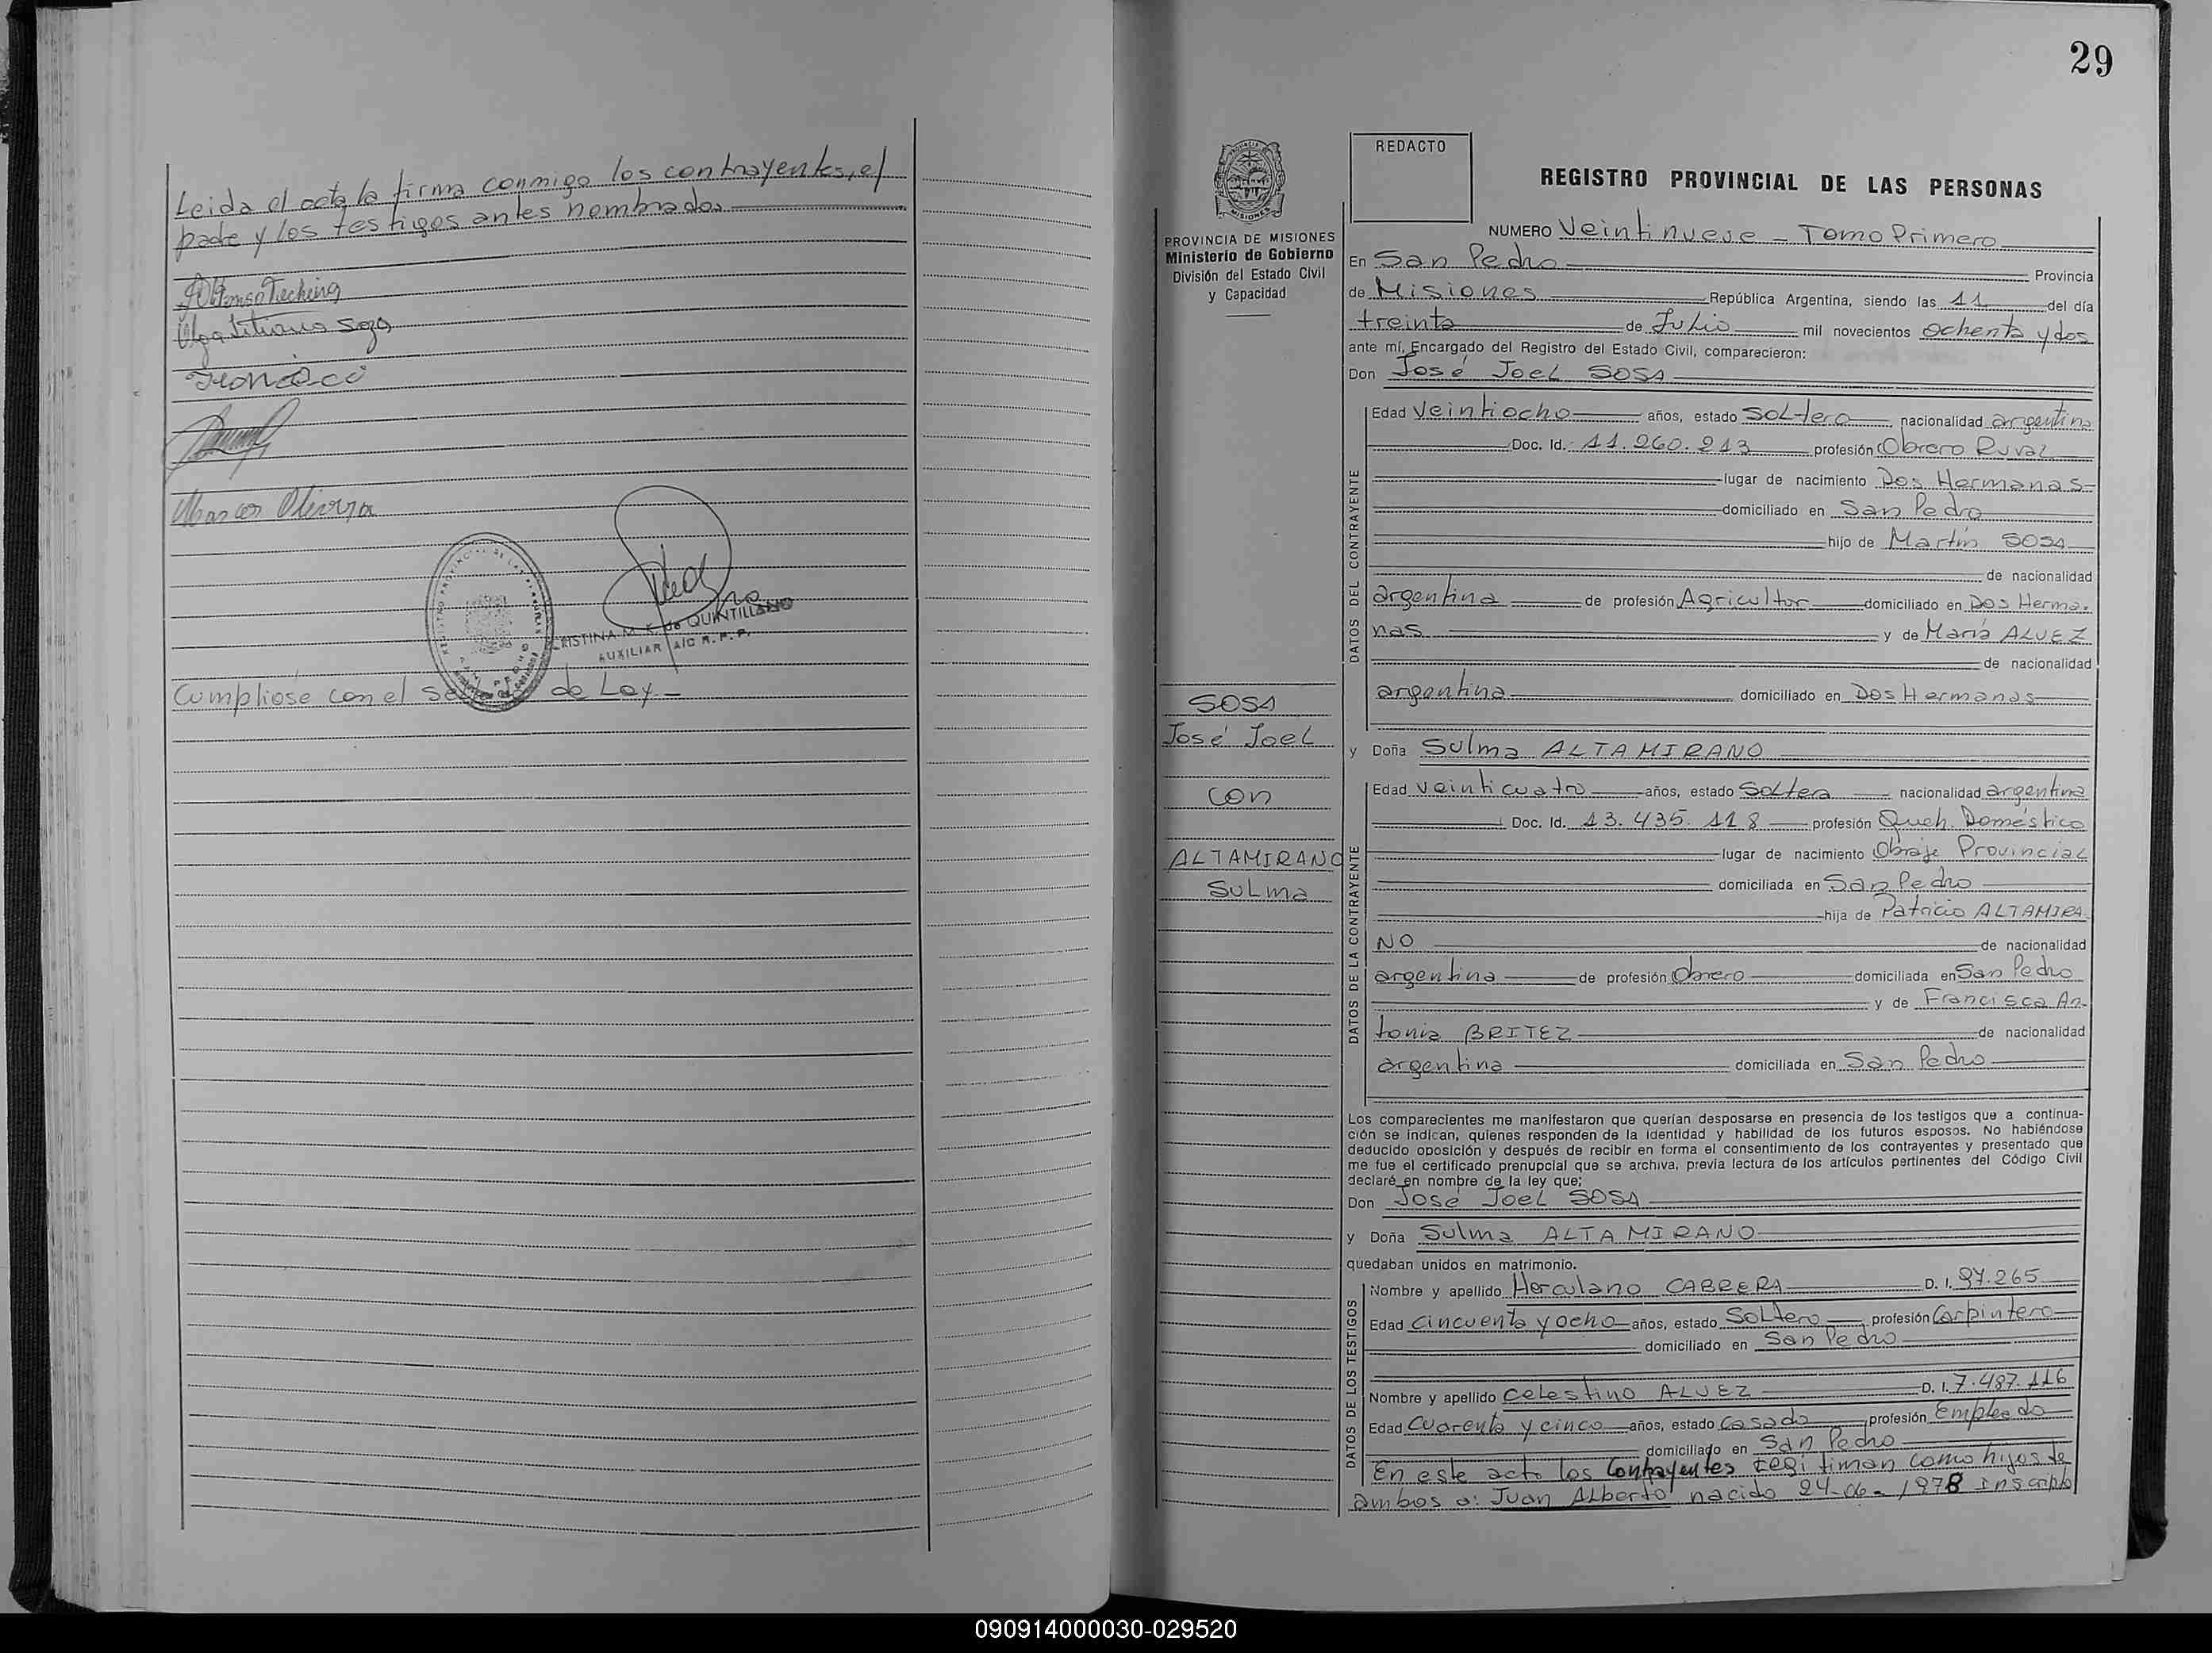 Leida el acta la firma conmigo los contrayentes, el
padre y los testigos antes nombrados
Olga
Marcos
CRISTINA M. K. de QUINTILLANO
AUXILIAR A/C R.P.P.
Cumpliose con el sellado de Ley.-
29
REDACTO
MISIONES
PROVINCIA DE MISIONES
Ministerio de Gobierno
División del Estado Civil
y Capacidad
SOSA
José Joel
con
ALTAMIRANO
Sulma
REGISTRO PROVINCIAL DE LAS PERSONAS
NUMERO Veintinueve - Tomo Primero
En San Pedro Provincia
de Misiones República Argentina, siendo las 11 del día
treinta de Julio mil novecientos ochenta y dos
ante mí, Encargado del Registro del Estado Civil, comparecieron:
Don José Joel SOSA
DATOS DEL CONTRAYENTE
Edad Veintiocho años, estado Soltero nacionalidad argentina
Doc. Id. 11.260.213 profesión Obrero Rural
lugar de nacimiento Dos Hermanas
domiciliado en San Pedro
hijo de Martín SOSA
de nacionalidad
argentina de profesión Agricultor domiciliado en Dos Herma-
nas y de María ALVEZ
de nacionalidad
argentina domiciliado en Dos Hermanas
y Doña Sulma ALTAMIRANO
DATOS DE LA CONTRAYENTE
Edad veinticuatro años, estado Soltera nacionalidad argentina
Doc. Id. 13.435.118 profesión Queh. Doméstico
lugar de nacimiento Obraje Provincial
domiciliada en San Pedro
hija de Patricio ALTAMIRA
NO de nacionalidad
argentina de profesión Obrero domiciliada en San Pedro
y de Francisca An-
tonia BRITEZ de nacionalidad
argentina domiciliada en San Pedro
Los comparecientes me manifestaron que querían desposarse en presencia de los testigos que a continua-
ción se indican, quienes responden de la identidad y habilidad de los futuros esposos. No habiéndose
deducido oposición y después de recibir en forma el consentimiento de los contrayentes y presentado que
me fue el certificado prenupcial que se archiva, previa lectura de los artículos pertinentes del Código Civil
declaré en nombre de la ley que:
Don José Joel SOSA
y Doña Sulma ALTAMIRANO
quedaban unidos en matrimonio.
DATOS DE LOS TESTIGOS
Nombre y apellido Herculano CABRERA D. I. 97.265
Edad cincuenta y ocho años, estado Soltero profesión Carpintero
domiciliado en San Pedro
Nombre y apellido Celestino ALVEZ D. I. 7.487.116
Edad Cuarenta y cinco años, estado Casado profesión Empleado
domiciliado en San Pedro
En este acto los Contrayentes legitiman como hijos de
ambos a: Juan Alberto nacido 24-06-1978 inscripto
090914000030-029520